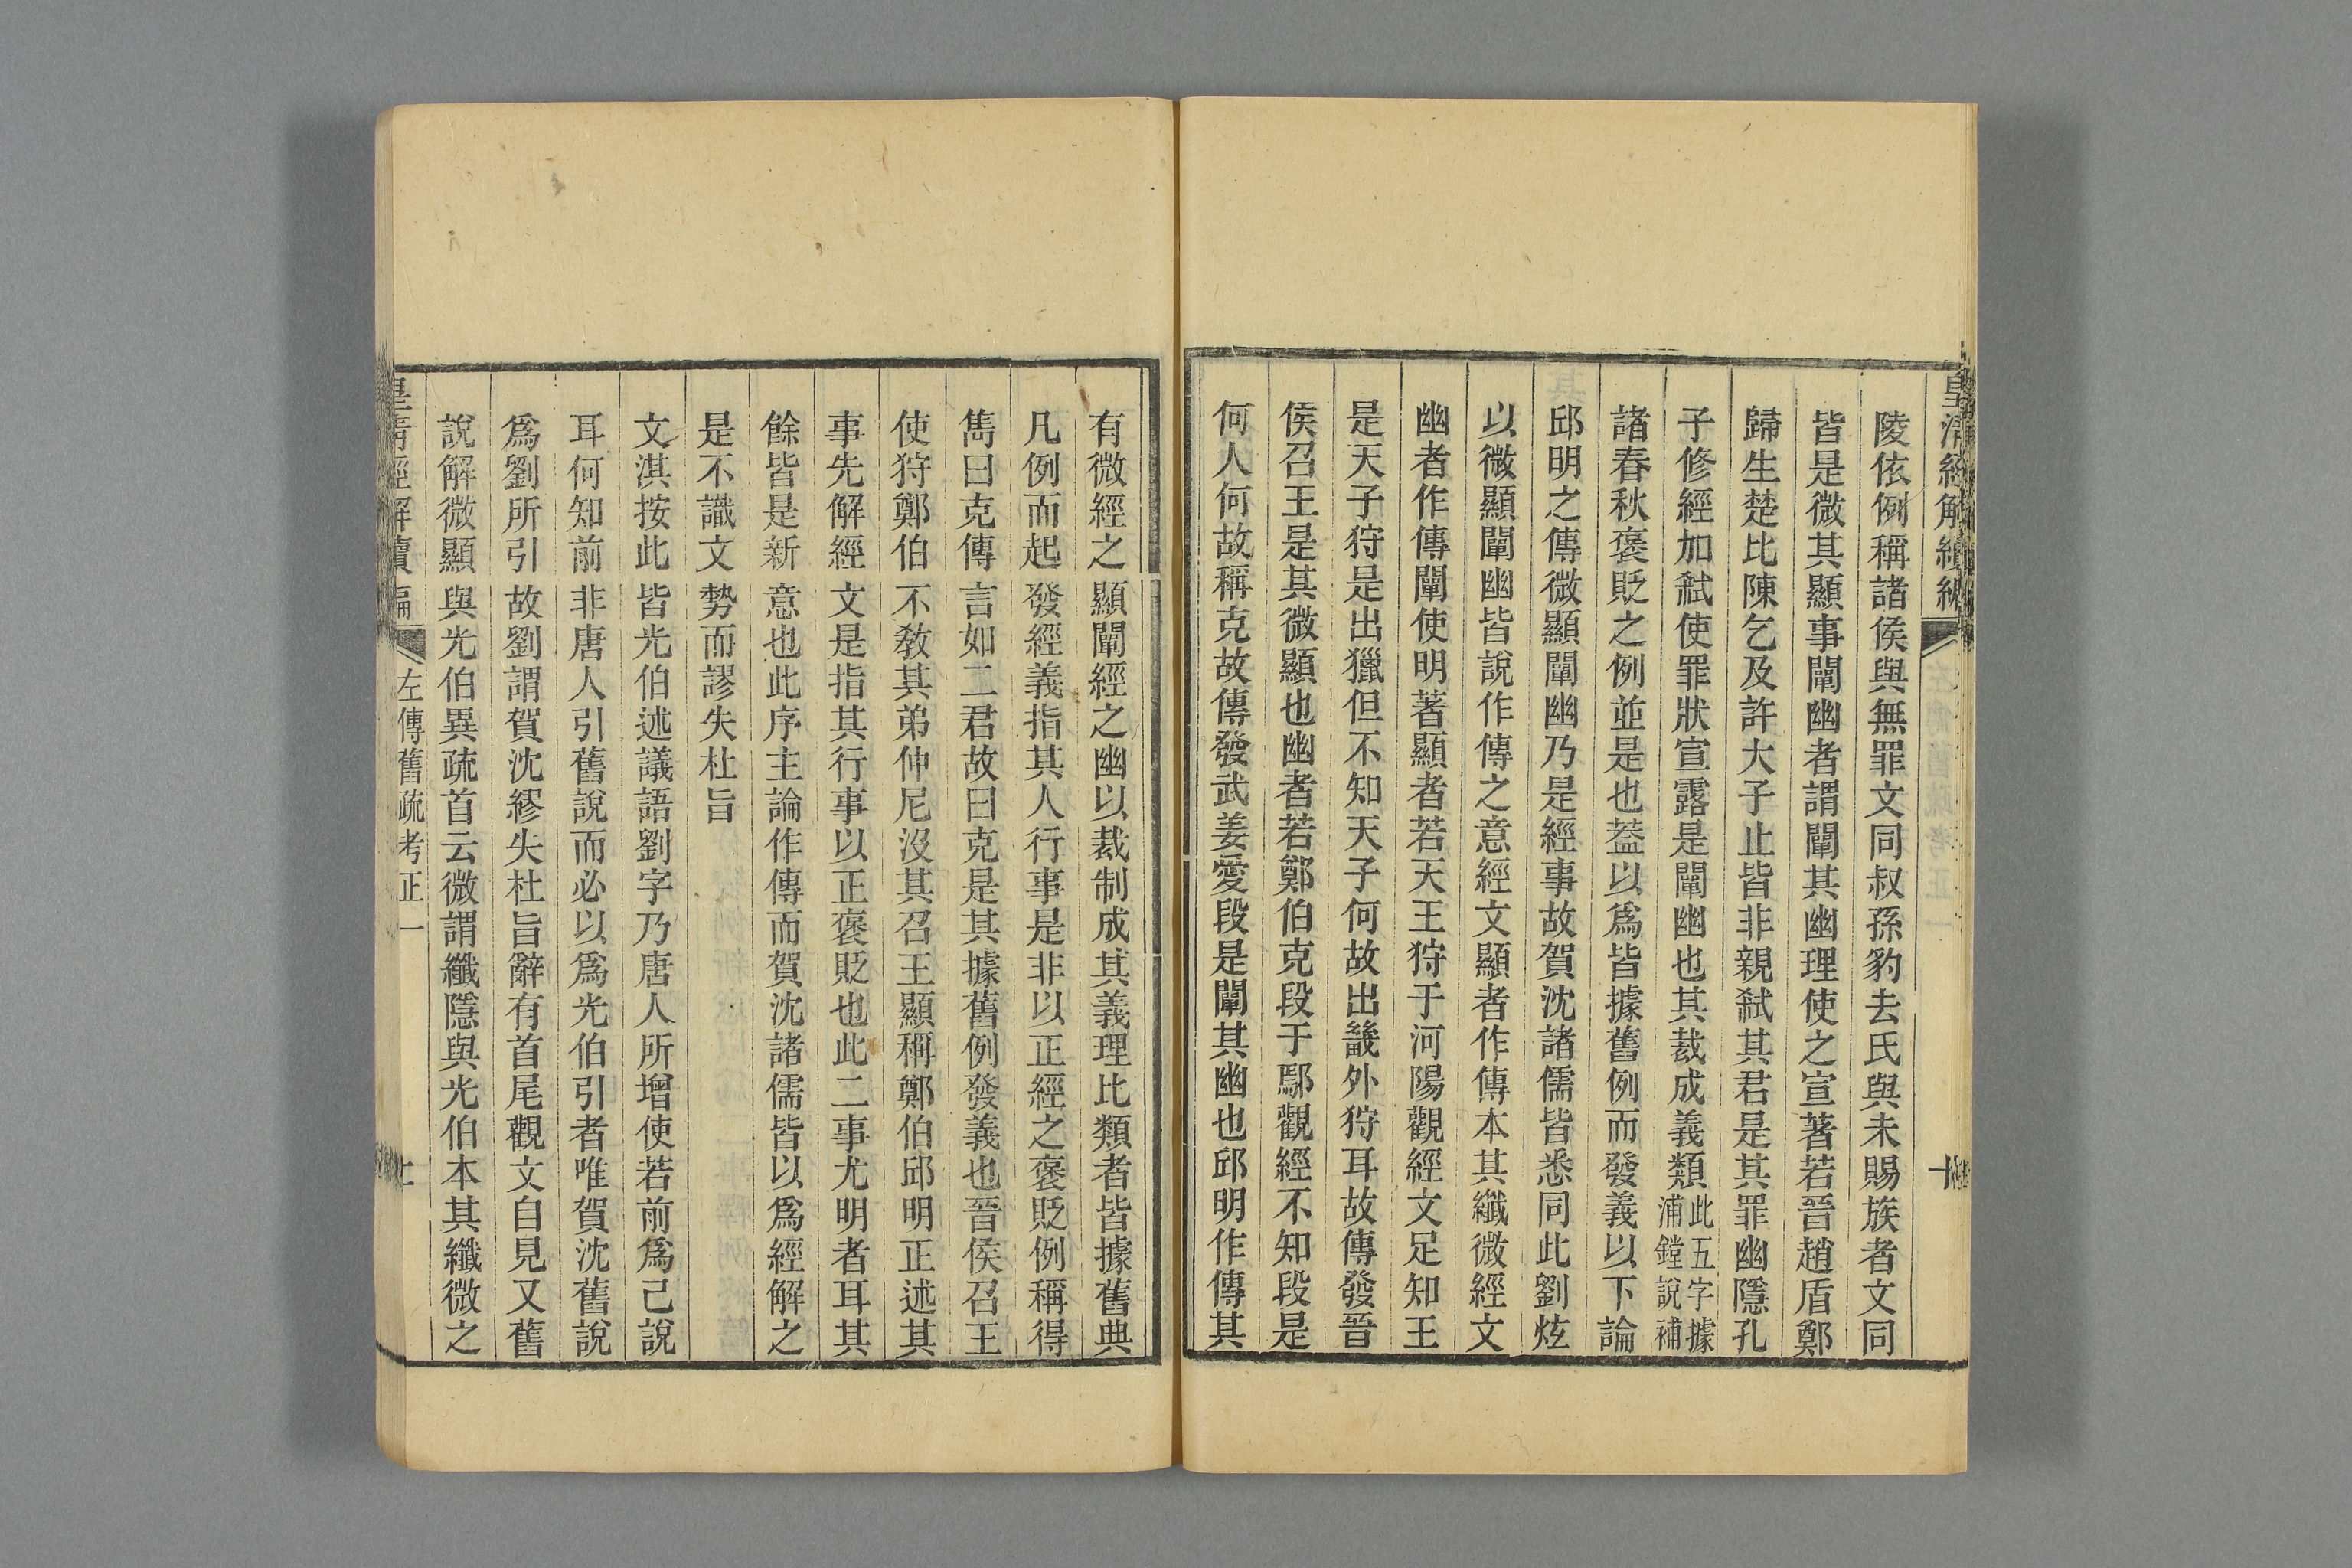 皇清經解續編
十
陵依例稱諸侯與無罪文同叔孫豹去氏與未賜族者文同
皆是微其顯事闡幽者謂闡其幽理使之宣著若晉趙盾鄭
歸生楚比陳乞及許大子止皆非親弒其君是其罪幽隱孔
子修經加弒使罪狀宣露是闡幽也其裁成義類此五字據浦鏜說補
諸春秋褒貶之例並是也葢以爲皆據舊例而發義以下論
邱明之傳微顯闡幽乃是經事故賀沈諸儒皆悉同此劉炫
以微顯闡幽皆說作傳之意經文顯者作傳本其纖微經文
幽者作傳闡使明著顯者若天王狩于河陽觀經文足知王
是天子狩是出獵但不知天子何故出畿外狩耳故傳發晉
侯召王是其微顯也幽者若鄭伯克段于鄢觀經不知段是
何人何故稱克故傳發武姜愛段是闡其幽也邱明作傳其
有微經之顯闡經之幽以裁制成其義理比類者皆據舊典
凡例而起發經義指其人行事是非以正經之褒貶例稱得
雋曰克傳言如二君故曰克是其據舊例發義也晉侯召王
使狩鄭伯不教其弟仲尼沒其召王顯稱鄭伯邱明正述其
事先解經文是指其行事以正褒貶也此二事尤明者耳其
餘皆是新意也此序主論作傳而賀沈諸儒皆以爲經解之
是不識文勢而謬失杜旨
文淇按此皆光伯述議語劉字乃唐人所增使若前爲己說
耳何知前非唐人引舊說而必以爲光伯引者唯賀沈舊說
爲劉所引故劉謂賀沈繆失杜旨辭有首尾觀文自見又舊
說解微顯與光伯異疏首云微謂纖隱與光伯本其纖微之
皇清經解續編
左傳舊疏考正一